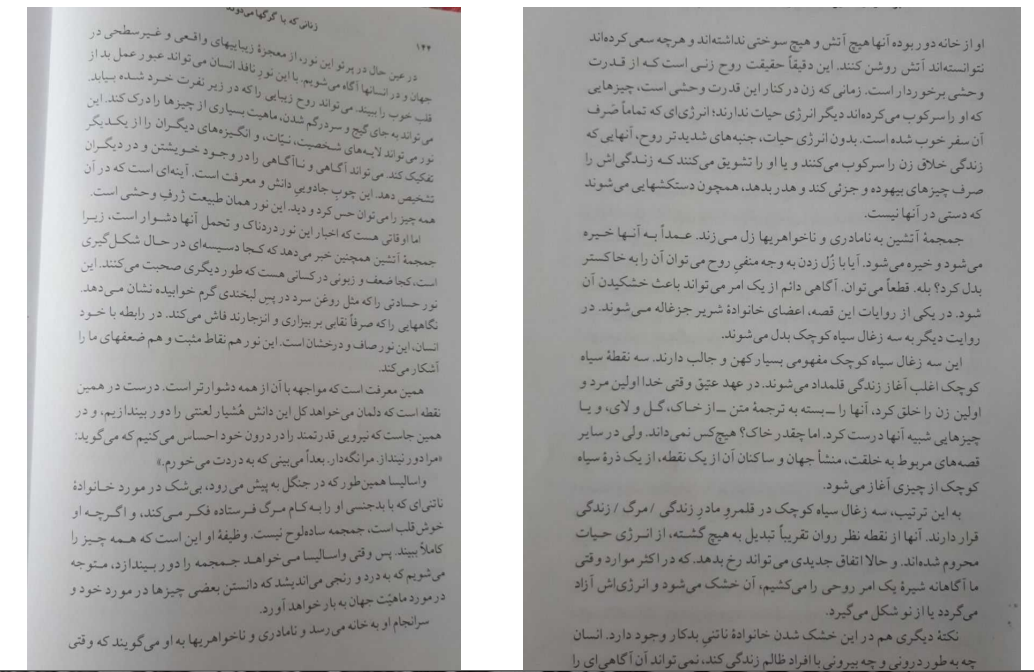 زنانی که با گرگها می‌دوند
۱۴۴
در عین حال در پرتو این نور، از معجزهٔ زیباییهای واقعی و غیرسطحی در
جهان و در انسانها آگاه می‌شویم. با این نورِ نافذ انسان می‌تواند عبور عمل بد از
قلب خوب را ببیند. می‌تواند روح زیبایی را که در زیر نفرت خرد شده بیابد.
می‌تواند به جای گیج و سردرگم شدن، ماهیت بسیاری از چیزها را درک کند. این
نور می‌تواند لایه‌های شخصیت، نیّات، و انگیزه‌های دیگران را از یکدیگر
تفکیک کند. می‌تواند آگاهی و ناآگاهی را در وجود خویشتن و در دیگران
تشخیص دهد. این چوبِ جادوییِ دانش و معرفت است. آینه‌ای است که در آن
همه چیز را می‌توان حس کرد و دید. این نور همان طبیعت ژرف وحشی است.
اما اوقاتی هست که اخبار این نور دردناک و تحمل آنها دشوار است، زیرا
جمجمهٔ آتشین همچنین خبر می‌دهد که کجا دسیسه‌ای در حال شکل‌گیری
است، کجا ضعف و زبونی در کسانی هست که طور دیگری صحبت می‌کنند. این
نور حسادتی را که مثل روغن سرد در پسِ لبخندی گرم خوابیده نشان می‌دهد.
نگاههایی را که صرفاً نقابی بر بیزاری و انزجارند فاش می‌کند. در رابطه با خود
انسان، این نور صاف و درخشان است. این نور هم نقاط مثبت و هم ضعفهای ما را
آشکار می‌کند.
همین معرفت است که مواجهه با آن از همه دشوارتر است. درست در همین
نقطه است که دلمان می‌خواهد کل این دانش هُشیار لعنتی را دور بیندازیم، و در
همین جاست که نیرویی قدرتمند را در درون خود احساس می‌کنیم که می‌گوید:
«مرا دور نینداز. مرا نگه‌دار. بعداً می‌بینی که به دردت می‌خورم.»
واسالیسا همین‌طور که در جنگل به پیش می‌رود، بی‌شک در مورد خانوادهٔ
ناتنی‌ای که با بدجنسی او را به کام مرگ فرستاده فکر می‌کند، و اگرچه او
خوش‌قلب است، جمجمه ساده‌لوح نیست. وظیفهٔ او این است که همه چیز را
کاملاً ببیند. پس وقتی واسالیسا می‌خواهد جمجمه را دور بیندازد، متوجه
می‌شویم که به درد و رنجی می‌اندیشد که دانستن بعضی چیزها در مورد خود و
در مورد ماهیّت جهان به بار خواهد آورد.
سرانجام او به خانه می‌رسد و نامادری و ناخواهریها به او می‌گویند که وقتی
او از خانه دور بوده آنها هیچ آتش و هیچ سوختی نداشته‌اند و هرچه سعی کرده‌اند
نتوانسته‌اند آتش روشن کنند. این دقیقاً حقیقت روح زنی است که از قدرت
وحشی برخوردار است. زمانی که زن در کنار این قدرت وحشی است، چیزهایی
که او را سرکوب می‌کرده‌اند دیگر انرژی حیات ندارند؛ انرژی‌ای که تماماً صَرف
آن سفر خوب شده است. بدون انرژی حیات، جنبه‌های شدیدتر روح، آنهایی که
زندگی خلاق زن را سرکوب می‌کنند و یا او را تشویق می‌کنند که زندگی‌اش را
صرف چیزهای بیهوده و جزئی کند و هدر بدهد، همچون دستکشهایی می‌شوند
که دستی در آنها نیست.
جمجمهٔ آتشین به نامادری و ناخواهریها زل می‌زند. عمداً به آنها خیره
می‌شود و خیره می‌شود. آیا با زُل زدن به وجه منفیِ روح می‌توان آن را به خاکستر
بدل کرد؟ بله. قطعاً می‌توان. آگاهی دائم از یک امر می‌تواند باعث خشکیدن آن
شود. در یکی از روایات این قصه، اعضای خانوادهٔ شریر جزغاله می‌شوند. در
روایت دیگر به سه زغال سیاه کوچک بدل می‌شوند.
این سه زغال سیاه کوچک مفهومی بسیار کهن و جالب دارند. سه نقطهٔ سیاه
کوچک اغلب آغاز زندگی قلمداد می‌شوند. در عهد عتیق وقتی خدا اولین مرد و
اولین زن را خلق کرد، آنها را ــ بسته به ترجمهٔ متن ــ از خاک، گل و لای، و یا
چیزهایی شبیه آنها درست کرد. اما چقدر خاک؟ هیچ‌کس نمی‌داند. ولی در سایر
قصه‌های مربوط به خلقت، منشأ جهان و ساکنان آن از یک نقطه، از یک ذرهٔ سیاه
کوچک از چیزی آغاز می‌شود.
به این ترتیب، سه زغال سیاه کوچک در قلمروِ مادرِ زندگی / مرگ / زندگی
قرار دارند. آنها از نقطه نظر روان تقریباً تبدیل به هیچ گشته، از انرژی حیات
محروم شده‌اند. و حالا اتفاق جدیدی می‌تواند رخ بدهد. که در اکثر موارد وقتی
ما آگاهانه شیرهٔ یک امر روحی را می‌کشیم، آن خشک می‌شود و انرژی‌اش آزاد
می‌گردد یا از نو شکل می‌گیرد.
نکتهٔ دیگری هم در این خشک شدن خانوادهٔ ناتنیِ بدکار وجود دارد. انسان
چه به طور درونی و چه بیرونی با افراد ظالم زندگی کند، نمی‌تواند آن آگاهی‌ای را